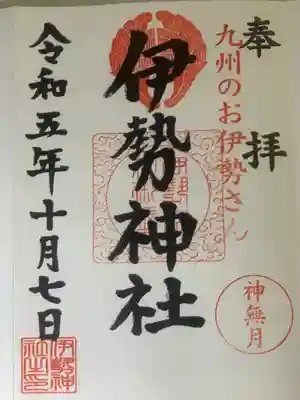 奉拝
九州のお伊勢さん
神無月
伊勢神社
令和五年十月七日
伊勢神社之印